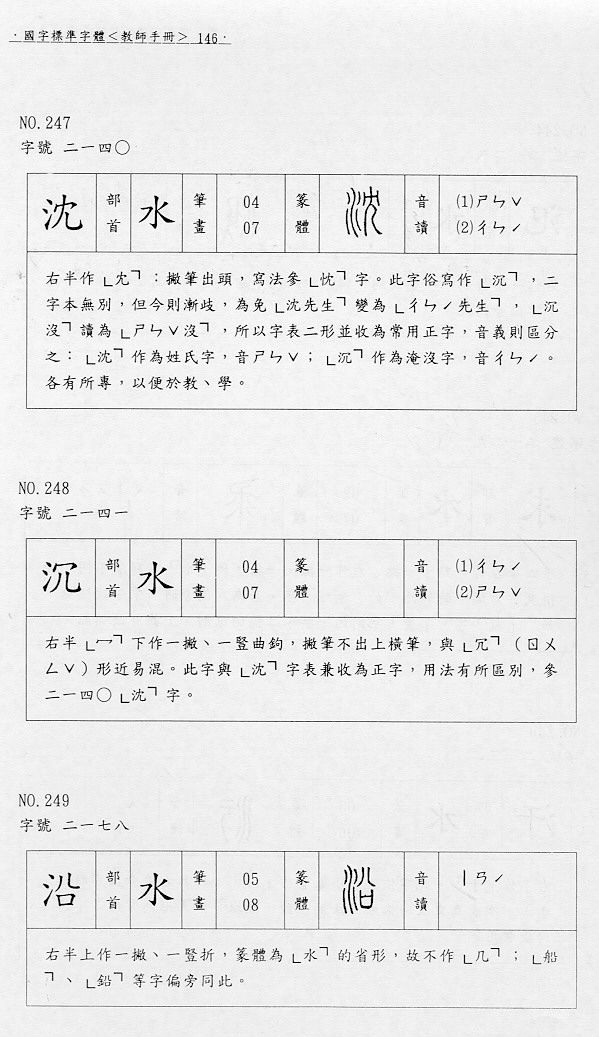 ·國字標準字體<教師手冊> 146·
NO.247
字號 二一四〇
沈 部首 水 筆畫 04 07 篆體 沈 音讀 ⑴ㄕㄣˇ ⑵ㄔㄣˊ
右半作﹂冘﹁：撇筆出頭，寫法參﹂忱﹁字。此字俗寫作﹂沉﹁，二
字本無別，但今則漸歧，為免﹂沈先生﹁變為﹂ㄔㄣˊ先生﹁，﹂沉
沒﹁讀為﹂ㄕㄣˇ沒﹁，所以字表二形並收為常用正字，音義則區分
之：﹂沈﹁作為姓氏字，音ㄕㄣˇ；﹂沉﹁作為淹沒字，音ㄔㄣˊ。
各有所專，以便於教、學。
NO.248
字號 二一四一
沉 部首 水 筆畫 04 07 篆體 音讀 ⑴ㄔㄣˊ ⑵ㄕㄣˇ
右半﹂冖﹁下作一撇、一豎曲鉤，撇筆不出上橫筆，與﹂冗﹁（ㄖㄨ
ㄥˇ）形近易混。此字與﹂沈﹁字表兼收為正字，用法有所區別，參
二一四〇﹂沈﹁字。
NO.249
字號 二一七八
沿 部首 水 筆畫 05 08 篆體 沿 音讀 ㄧㄢˊ
右半上作一撇、一豎折，篆體為﹂水﹁的省形，故不作﹂几﹁；﹂船
﹁、﹂鉛﹁等字偏旁同此。